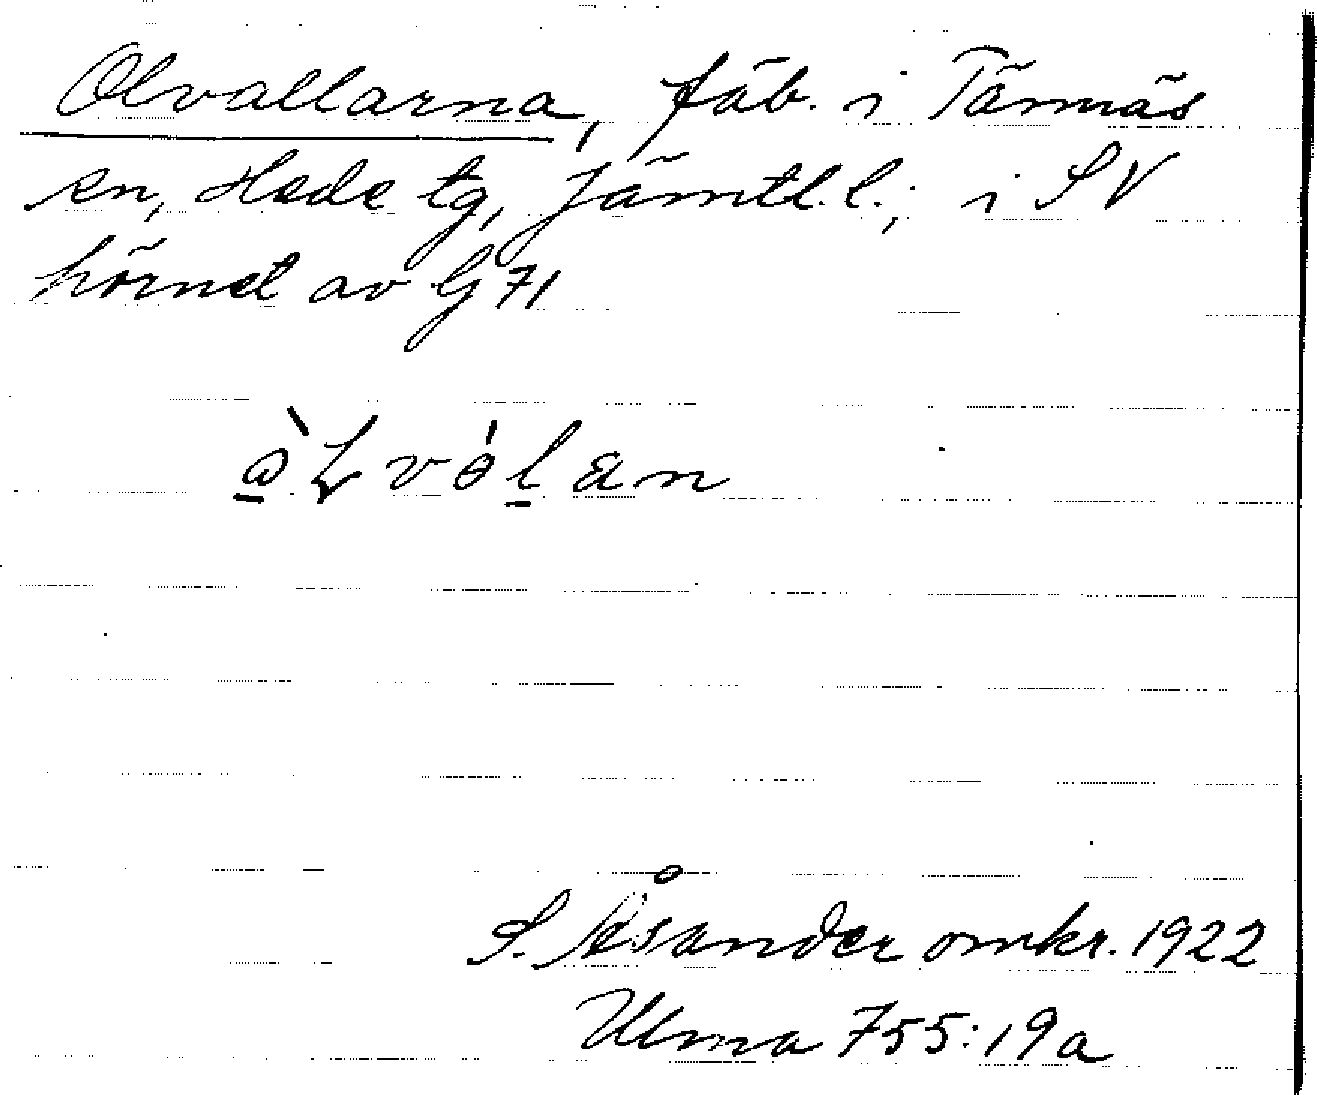 Olvallarna, fäb. i Tännäs
sn, Hede tg, Jämtl. l.; i SV
hörnet av G 71
ὼLvɵ́lan
S. Åsander omkr. 1922
Ulma 755:19a